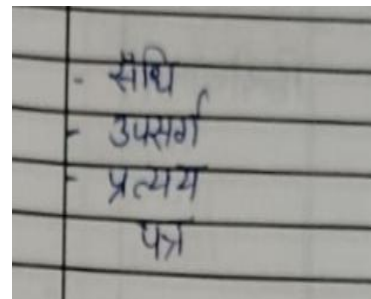 - संधि
- उपसर्ग
- प्रत्यय
पत्र